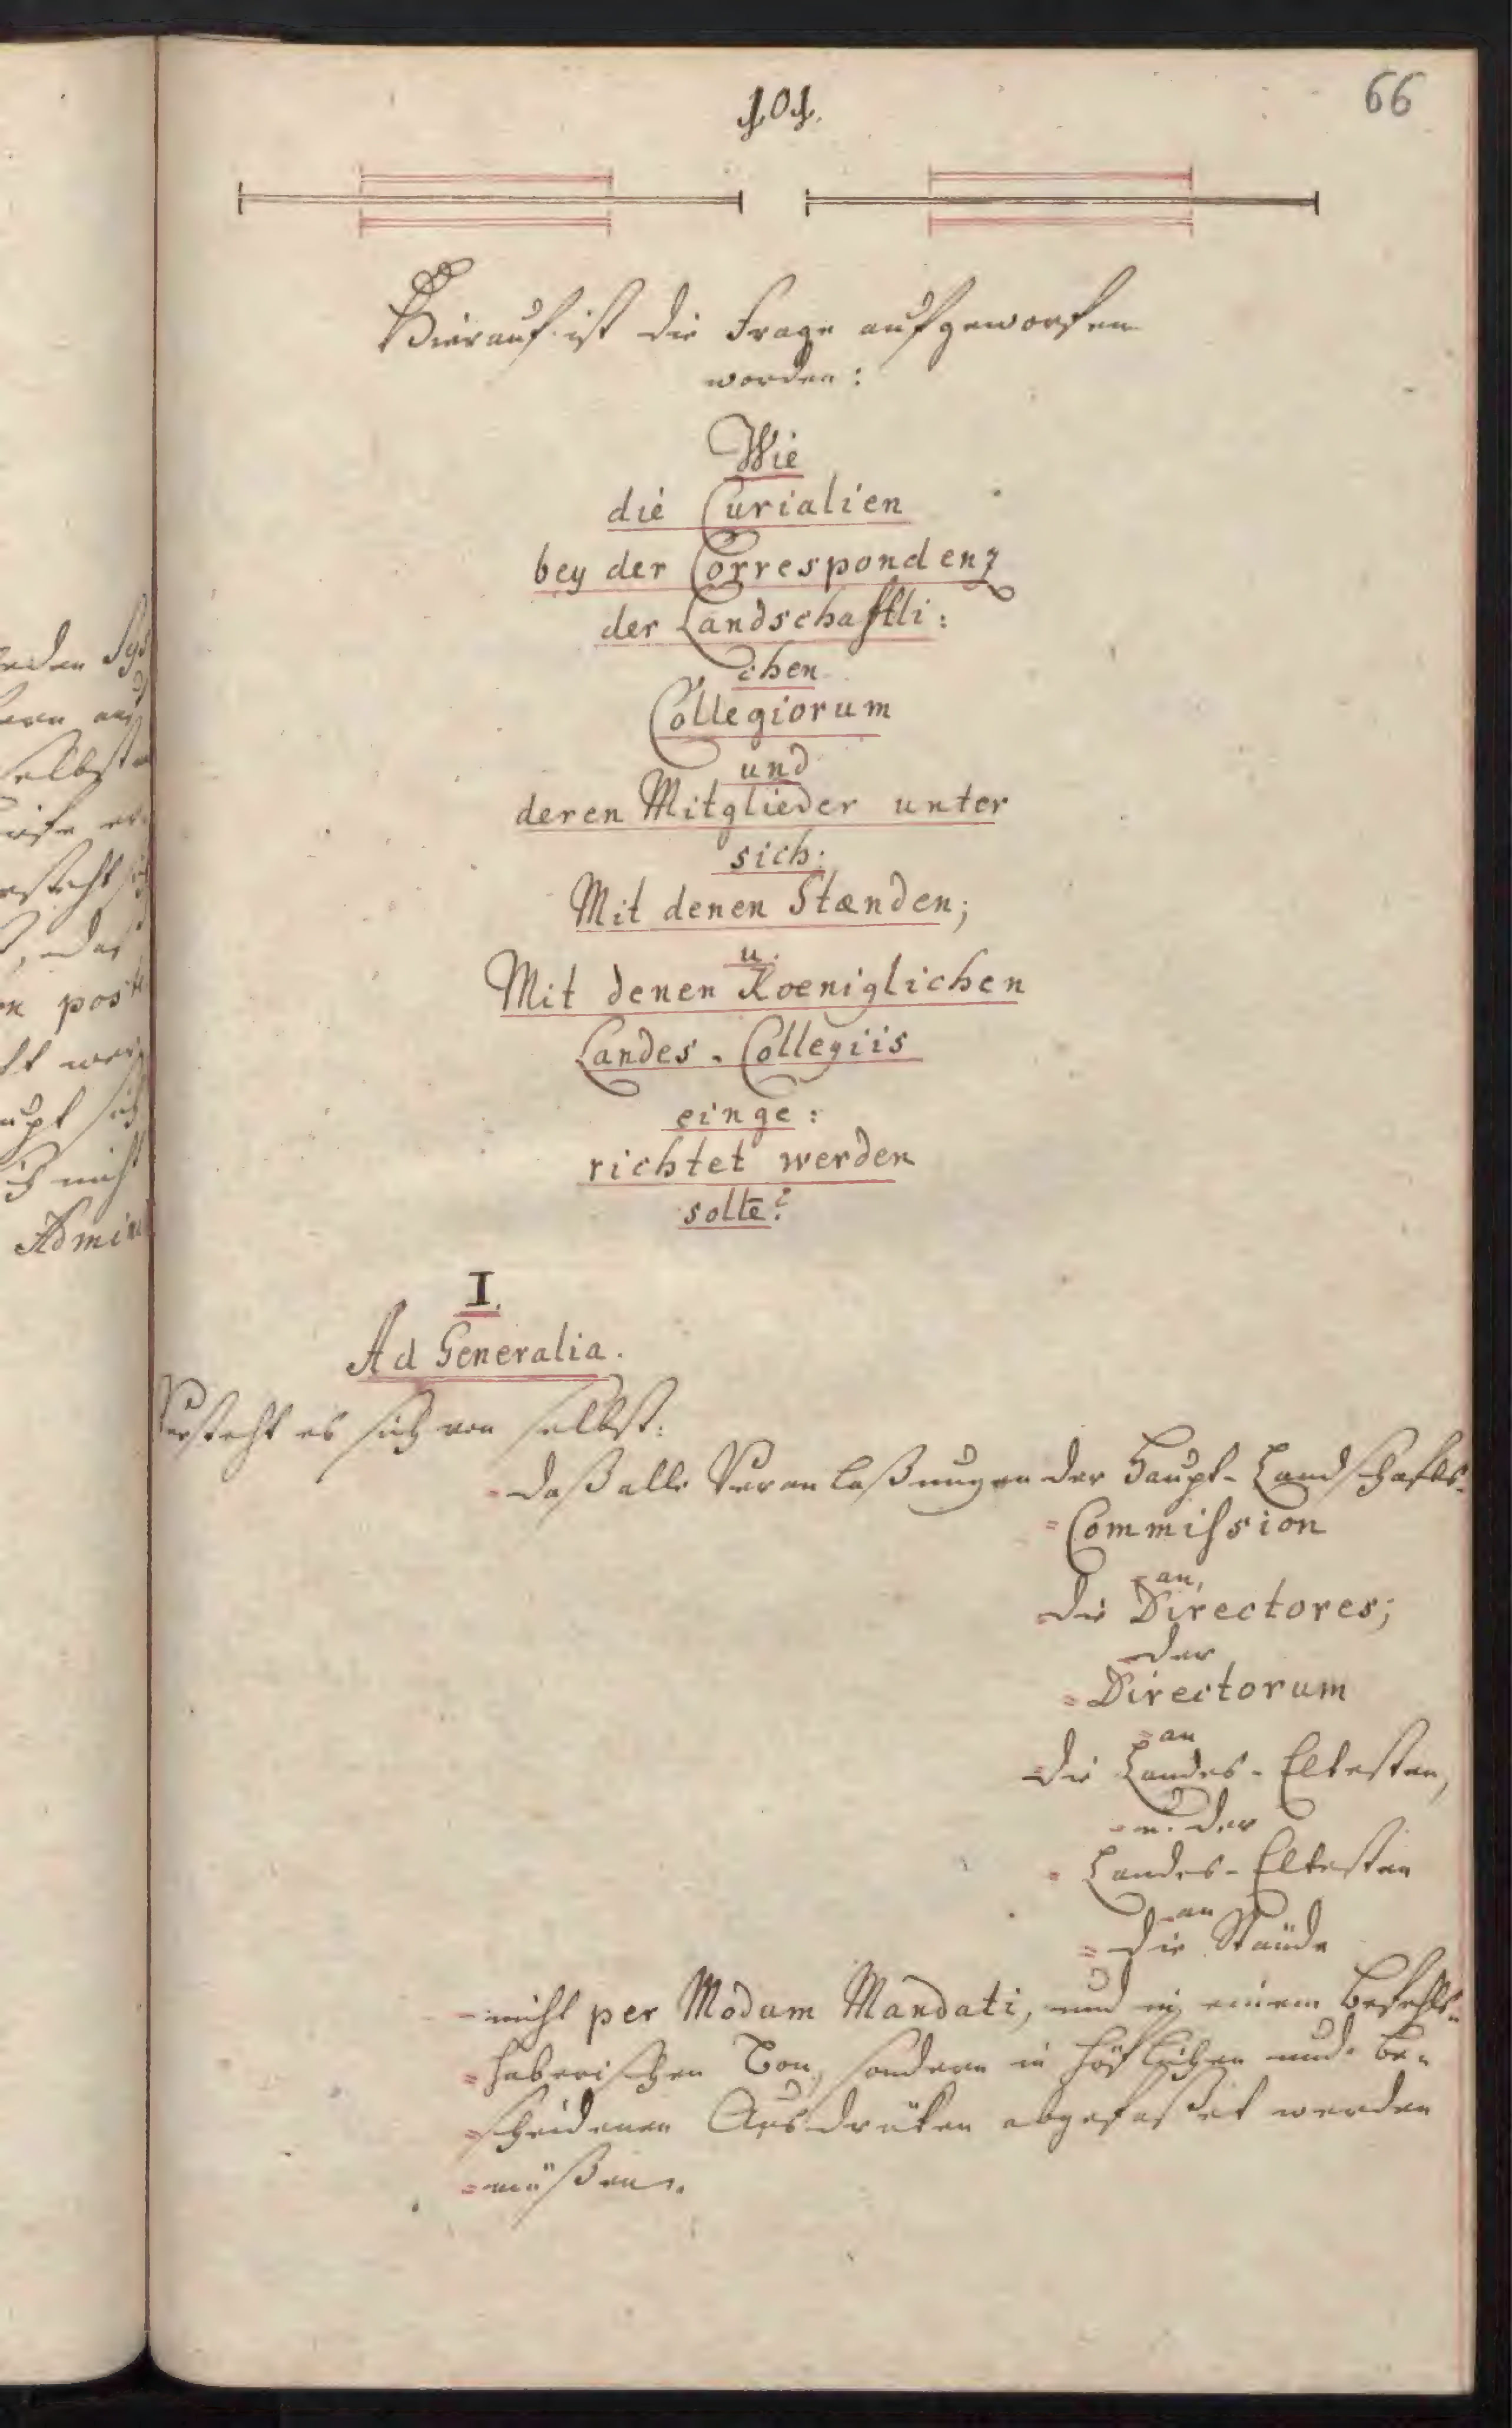 101.
66
Hierauf ist die Frage aufgeworfen
worden:
Wie
die Curialien
bey der Correspondenz
der Landschafftli:
chen
Collegiorum
und
deren Mitglieder unter
sich;
Mit denen Stænden;
u.
Mit denen Koeniglichen
Landes-Collegiis
einge:
richtet werden
solte?
I.
Ad Generalia.
Versteht es sich von selbst:
daß alle Veranlaßungen der Haupt-Landschafts-
Commission
an,
die Directores;
der
Directorum
an
die Landes-Eltesten,
u. der
Landes-Eltesten
an
die Stände
nicht per Modum Mandati, und in einem Befehls-
haberischen Ton, sondern in höflichen und be-
scheidenen Ausdrüken abgefaßet werden
müßen.